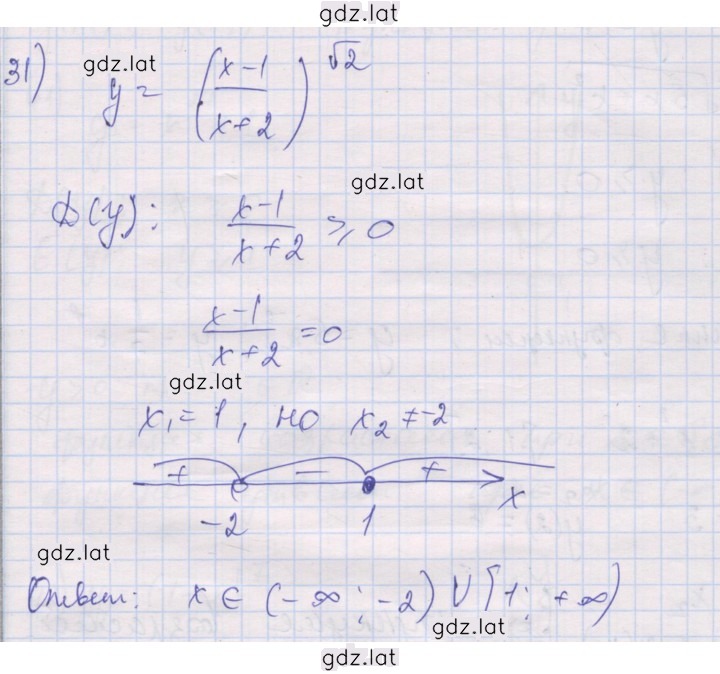 gdz.lat
31) gdz.lat y = ((x-1)/(x+2))^√2
gdz.lat
D(y): (x-1)/(x+2) ⩾ 0
(x-1)/(x+2) = 0
gdz.lat
x₁ = 1, но x₂ ≠ -2
+ − + x
-2 1
gdz.lat
Ответ: x ∈ (-∞; -2) ∪ [1; +∞)
gdz.lat
gdz.lat